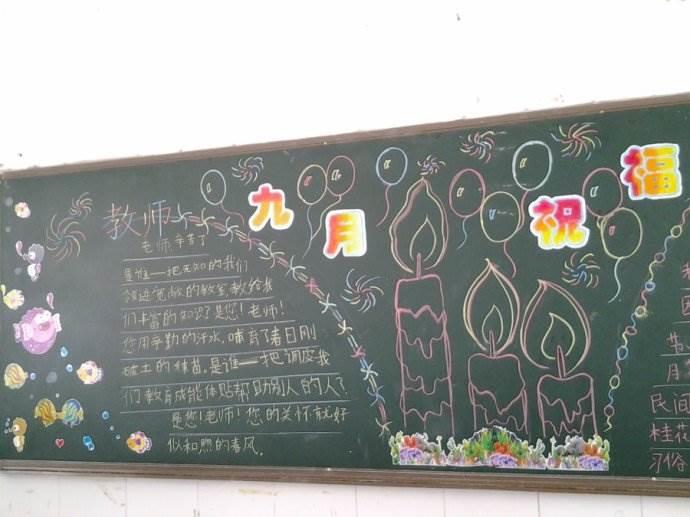 九月祝福
教师
老师辛苦了
是谁—把无知的我们
领进宽敞的教室,教给我
们丰富的知识?是您!老师!
您用辛勤的汗水,哺育了春日刚
破土的林苗,是谁—把调皮我
们教育成能体贴帮助别人的人?
是您!老师!您的关怀就好
似和煦的春风。
节
月
民间
桂花
习俗